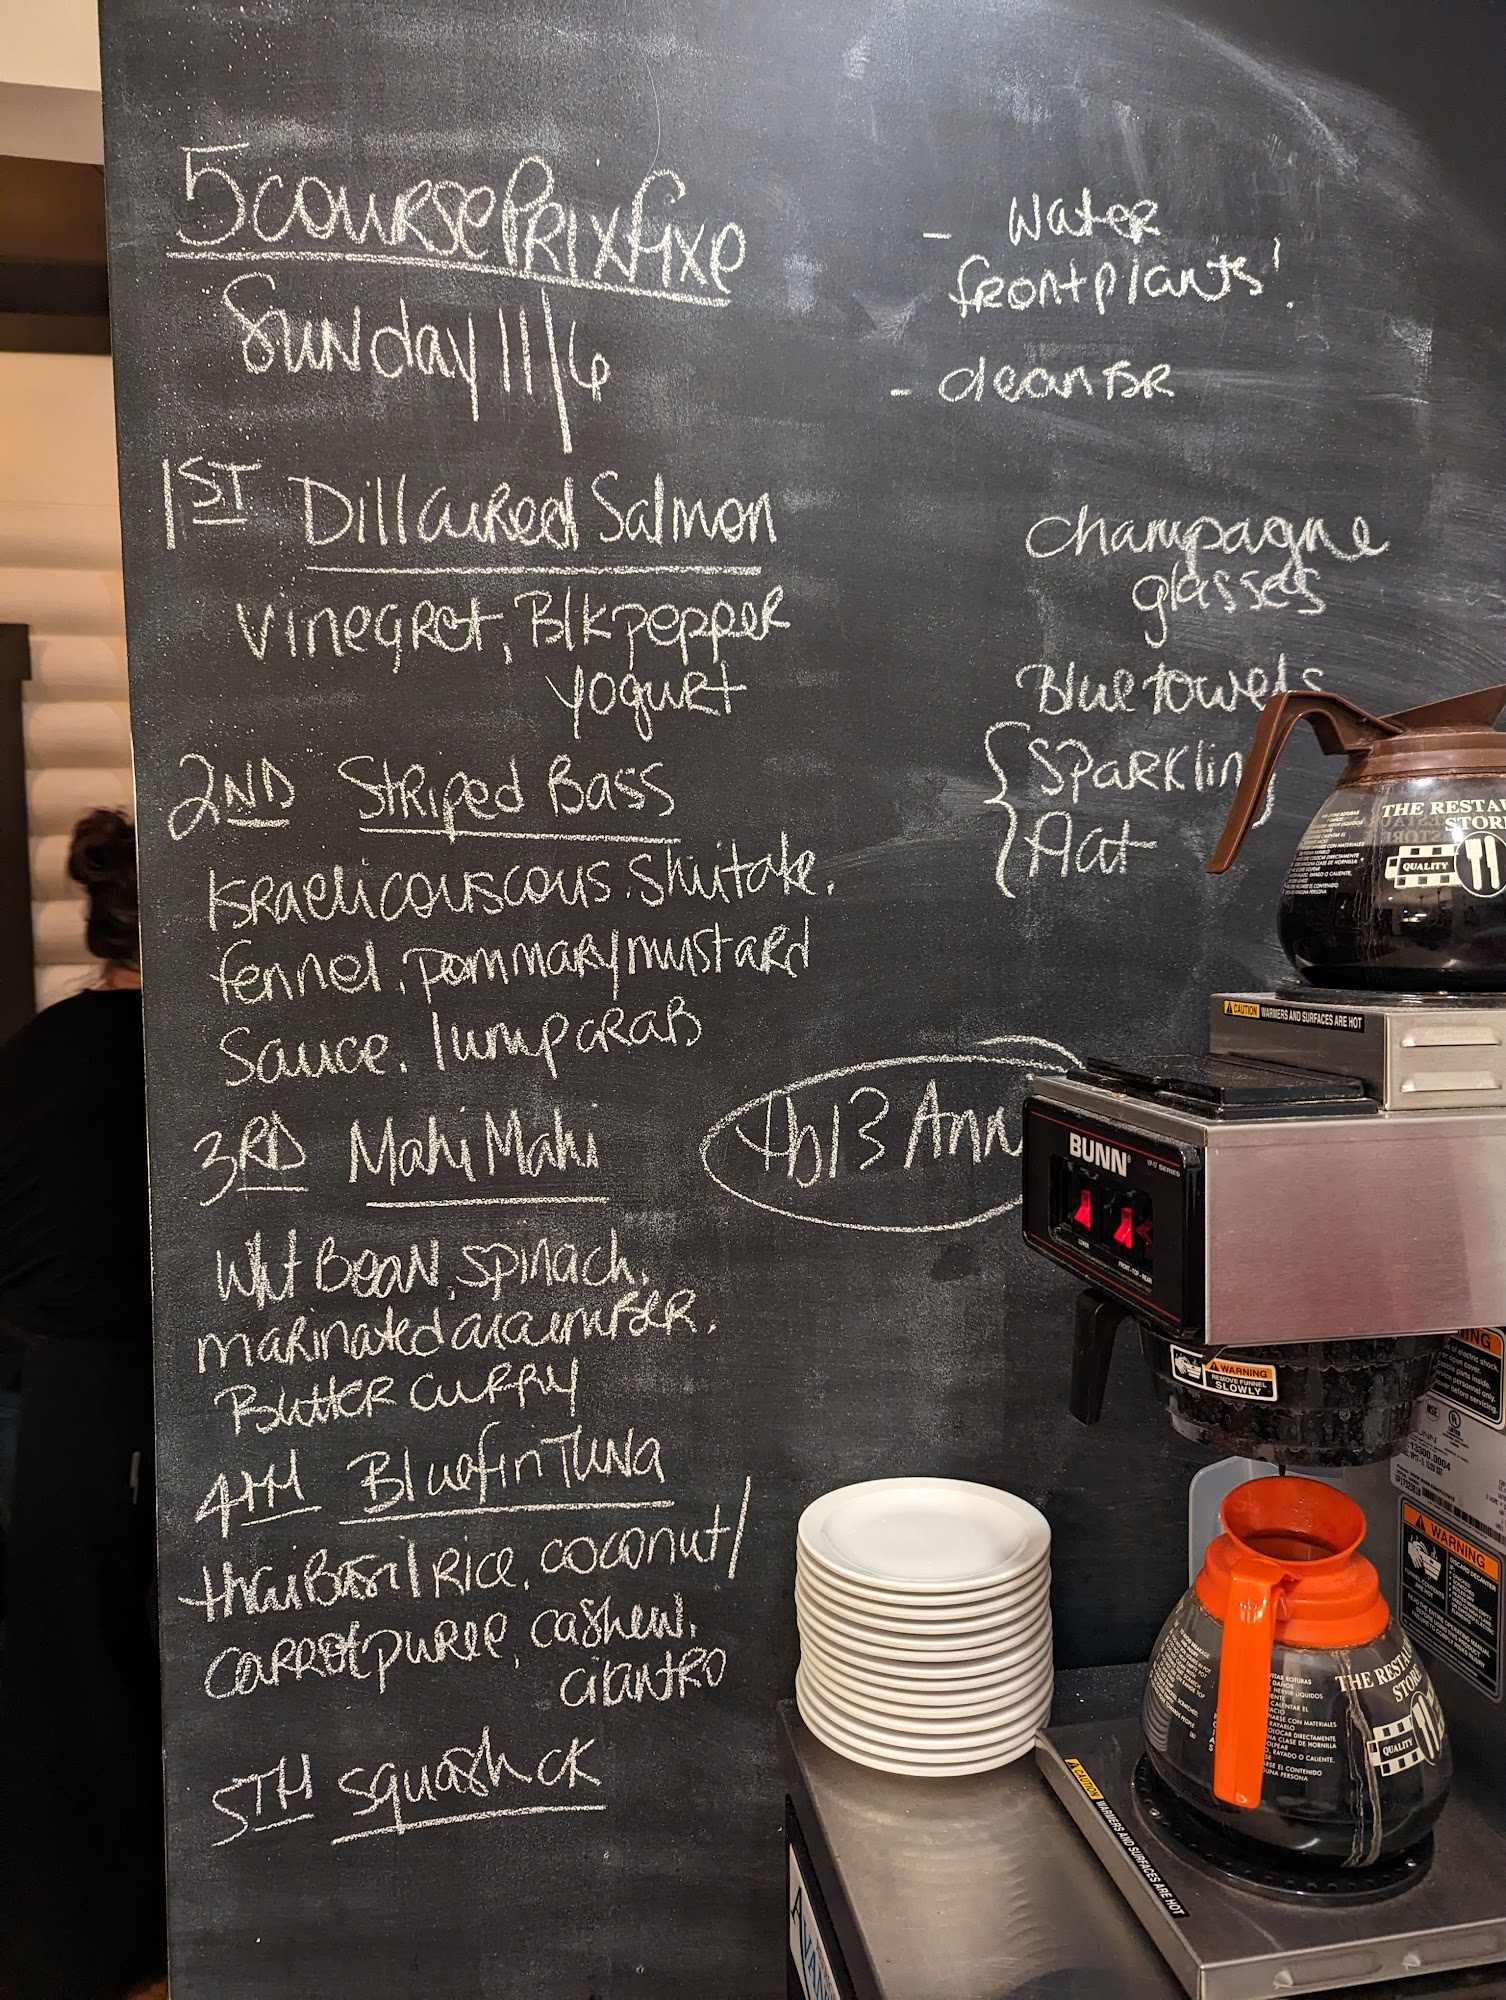 5 course Prix fixe
Sunday 11/6
1ST Dill cured Salmon
vinegret, Blk pepper
yogurt
2ND Striped Bass
Israeli couscous, Shiitake,
fennel, pommary mustard
Sauce, lump crab
3RD Mahi Mahi
Wht Bean, spinach,
marinated cucumber,
Butter curry
4TH Bluefin Tuna
thai Basil rice, coconut/
carrot puree, cashew,
cilantro
5TH squash ck
- Water
front plants!
- cleanser
champagne
glasses
Blue towels
Sparklin
flat
tbl 3 Ann
THE RESTAU
STOR
QUALITY
CAUTION WARMERS AND SURFACES ARE HOT
BUNN
WARNING
REMOVE FUNNEL
SLOWLY
WARNING
THE RESTA
STOR
QUALITY
CAUTION WARMERS AND SURFACES ARE HOT